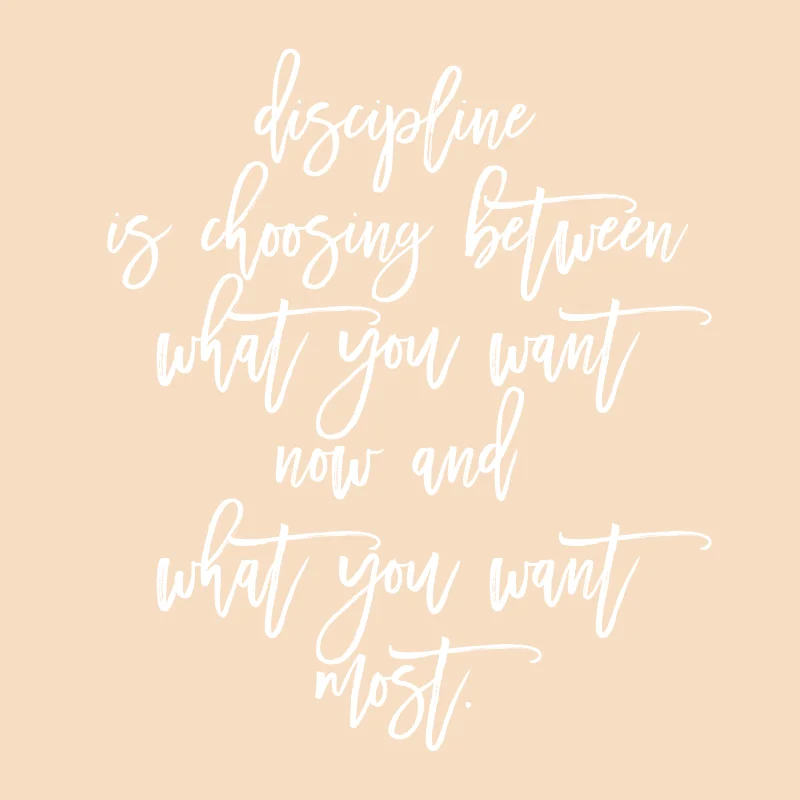 discipline
is choosing between
what you want
now and
what you want
most.